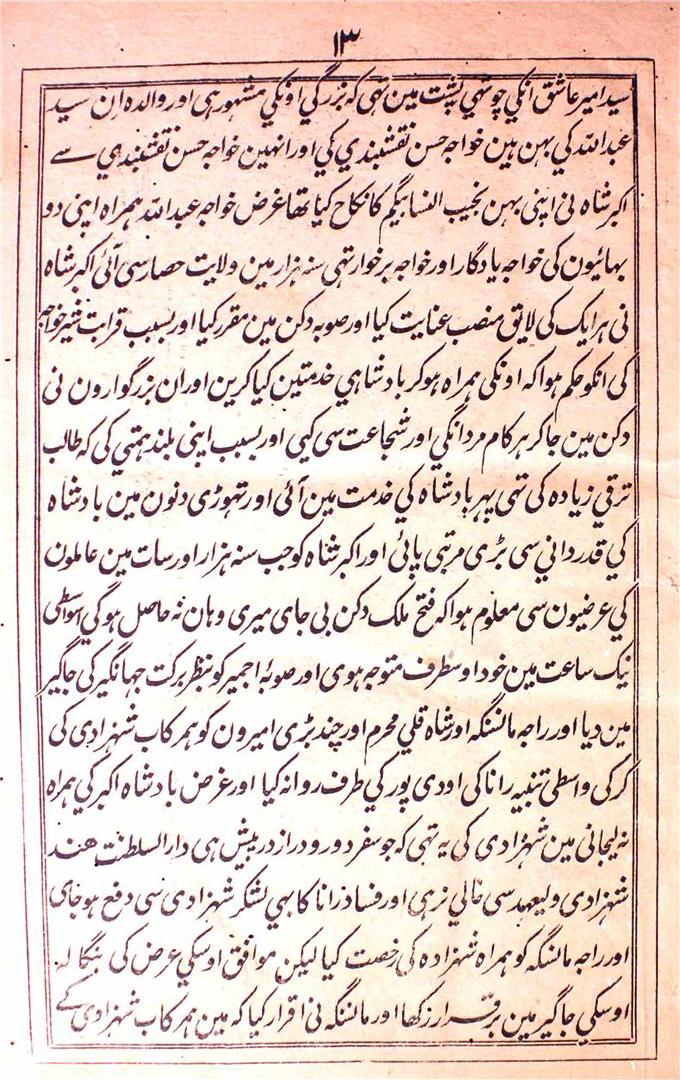 ۱۳
سید امیر عاشق انکي چوتهي پشت مین تهي که بزرگي اونکي مشهور هی اور والده ان سید
عبد الله کي بهن هین خواجه حسن نقشبندي کي اور انهین خواجه حسن نقشبندي سے
اکبر شاه نی اپنی بهن نجیب النسا بیگم کا نکاح کیا تها غرض خواجه عبد الله همراه اپنی دو
بهائیون کی خواجه یادگار اور خواجه برخوار تهی سنه هزار مین ولایت حصار سی آئی اکبر شاه
نی هر ایک کی لایق منصب عنایت کیا اور صوبه دکن مین مقرر کیا اور بسبب قرابت شیر خواجه
کی انکو حکم هوا که اونکی همراه هوکر بادشاهي خدمتین کیا کرین اور ان بزرگوارون نی
دکن مین جاکر هر کام مردانگي اور شجاعت سی کیی اور بسبب اپنی بلند همتي کی که طالب
ترقي زیاده کی تهی پهر بادشاه کي خدمت مین آئی اور تهوڑی دنون مین بادشاه
کي قدرداني سی بڑی مرتبی پائی اور اکبر شاه کو جب سنه هزار اور سات مین عاملون
کي عرضیون سی معلوم هوا که فتح ملک دکن بی جای میری وهان نه حاصل هوگي اسواسطی
نیک ساعت مین خود اوسطرف متوجه هوی اور صوبهٔ اجمیر کو بنظر برکت جهانگیر کی جاگیر
مین دیا اور راجه مانسنگه اور شاه قلي محرم اور چند بڑی امیرون کو همرکاب شهزادی کی
کرکی واسطی تنبیه رانا کی اودی پور کي طرف روانه کیا اور غرض بادشاه اکبر کي همراه
نه لیجانی مین شهزادی کی یه تهی که جو سفر دور و دراز درپیش هی دار السلطنت هند
شهزادی ولیعهد سی خالي نرهی اور فساد رانا کا بهي لشکر شهزادی سی دفع هو جای
اور راجه مانسنگه کو همراه شهزاده کی رخصت کیا لیکن موافق اوسکي عرض کی بنگاله
اوسکي جاگیر مین برقرار رکها اور مانسنگه نی اقرار کیا که مین همرکاب شهزادی کے